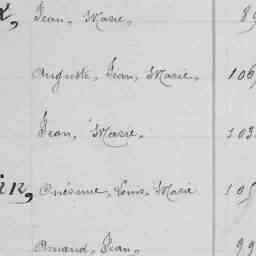 Jean, Marie,
Auguste, Jean, Marie,
Jean, Marie,
Onésime, Louis, Marie
Armand, Jean, 99